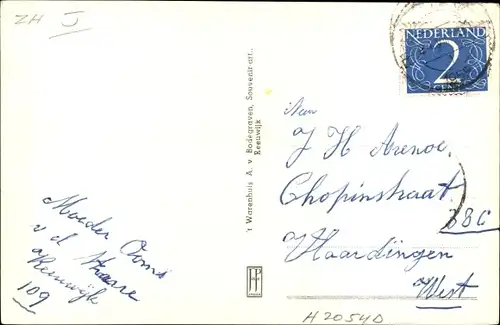 ZH J
NEDERLAND
2
CENT
't Warenhuis A. v. Bodegraven, Souvenir-art.,
Reeuwijk
J H Arenoe
Chopinstraat
38C
Vlaardingen
West
Moeder Ooms
v d
Reeuwijk
109
HP
H2054D